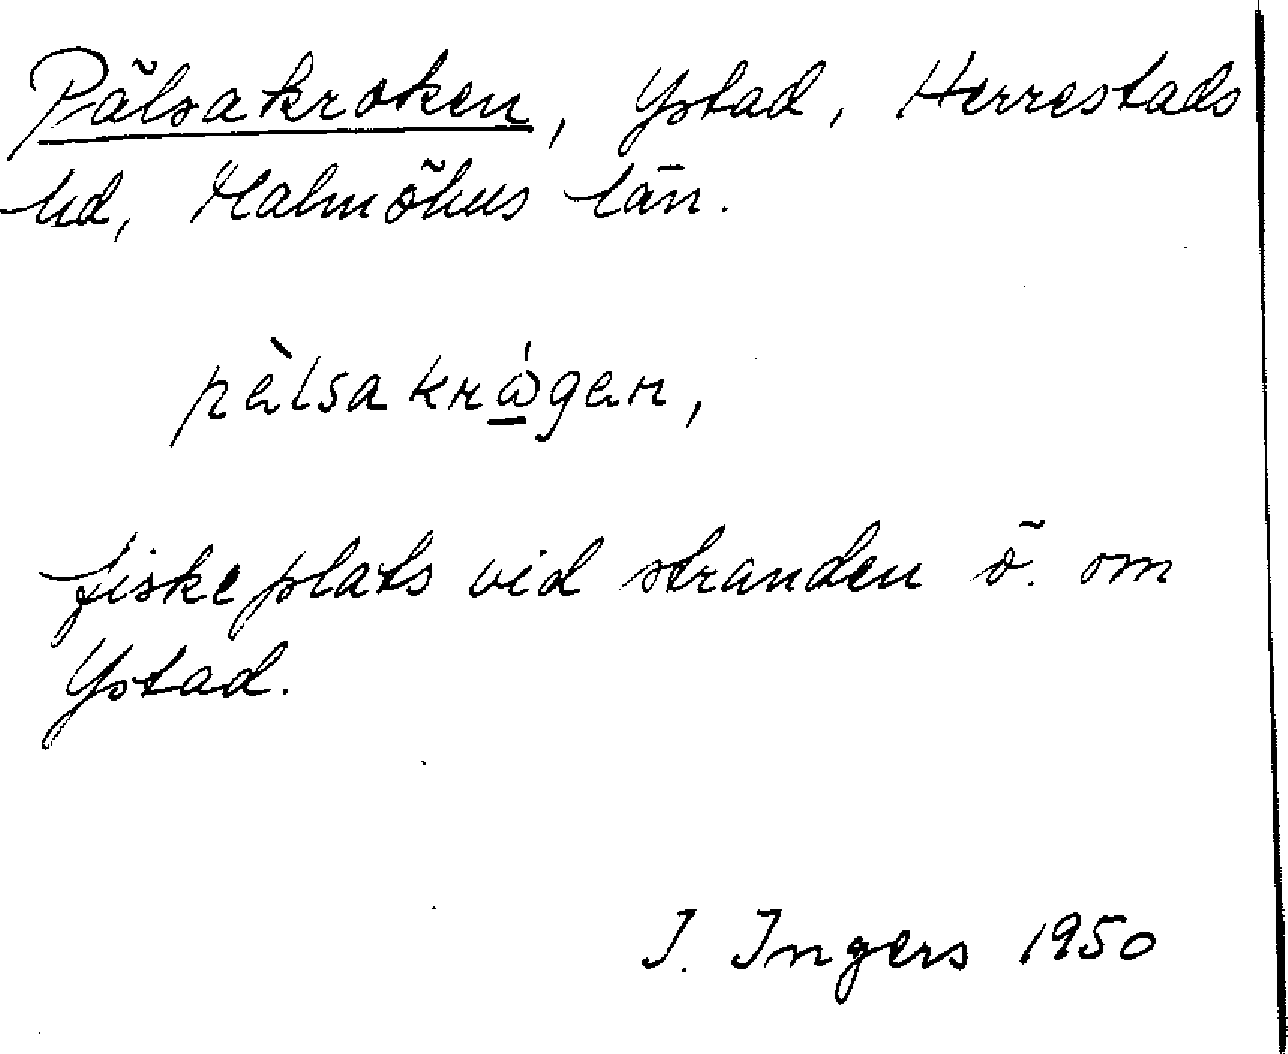 Pälsakroken, Ystad, Herrestads
hd, Malmöhus län.
pèlsakrǻgen,
fiskeplats vid stranden ö. om
Ystad.
I. Ingers 1950